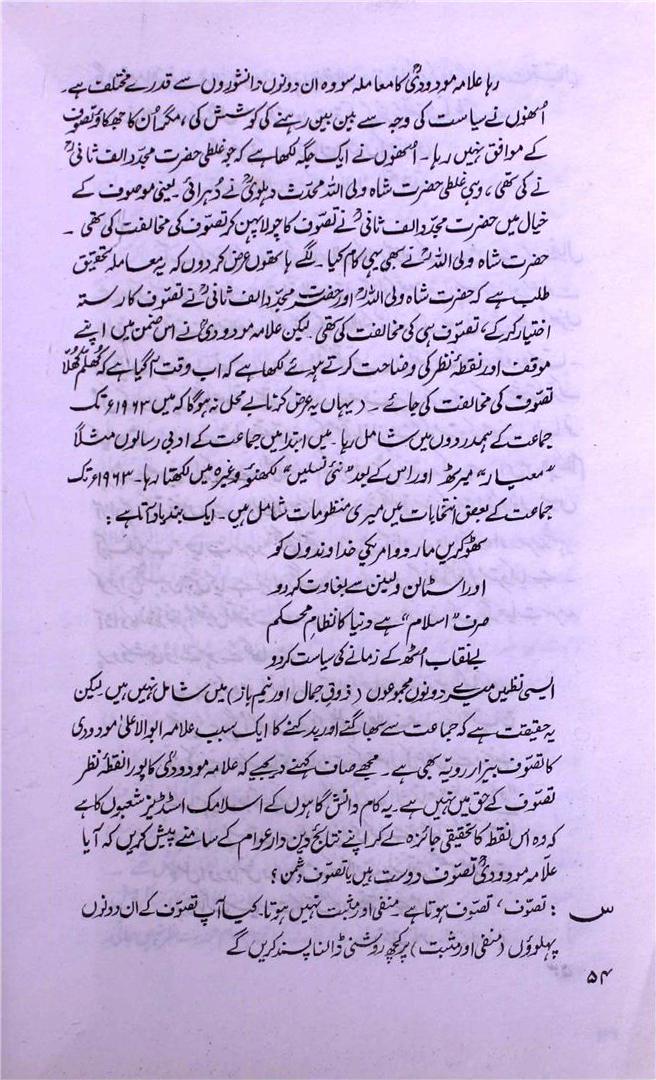 رہا علامہ مودودیؒ کا معاملہ سو وہ ان دونوں دانشوروں سے قدرے مختلف ہے۔
اُنھوں نے سیاست کی وجہ سے بین بین رہنے کی کوشش کی، مگر اُن کا جھکاؤ تصوّف
کے موافق نہیں رہا۔ اُنھوں نے ایک جگہ لکھا ہے کہ جو غلطی حضرت مجدّد الف ثانیؒ
نے کی تھی، وہی غلطی حضرت شاہ ولی اللہ محدّث دہلویؒ نے دُہرائی۔ یعنی موصوف کے
خیال میں حضرت مجدّد الف ثانیؒ نے تصوّف کا چولا پہن کر تصوّف کی مخالفت کی تھی۔
حضرت شاہ ولی اللہؒ نے بھی یہی کام کیا۔ لگے ہاتھوں عرض کردوں کہ یہ معاملہ تحقیق
طلب ہے کہ حضرت شاہ ولی اللہؒ اور حضرت مجدّد الف ثانیؒ نے تصوّف کا رستہ
اختیار کر کے، تصوّف ہی کی مخالفت کی تھی۔ لیکن علامہ مودودیؒ نے اس ضمن میں اپنے
موقف اور نقطۂ نظر کی وضاحت کرتے ہوئے لکھا ہے کہ اب وقت آگیا ہے کہ کُھلّم کُھلّا
تصوّف کی مخالفت کی جائے۔ (یہاں یہ عرض کرنا بے محل نہ ہوگا کہ میں ۱۹۶۳ء تک
جماعت کے ہمدردوں میں شامل رہا۔ میں ابتدا میں جماعت کے ادبی رسالوں مثلاً
”معیار“ میرٹھ اور اس کے بعد ”نئی نسلیں“ لکھنؤ وغیرہ میں لکھتا رہا۔ ۱۹۶۳ء تک
جماعت کے بعض انتخابات میں میری منظومات شامل ہیں۔ ایک بند یاد آتا ہے:
ٹھوکریں مارو و امریکی خداوندوں کو
اور اسٹالن و لینن سے بغاوت کردو
صرف ”اسلام“ ہے دنیا کا نظامِ محکم
بے نقاب اُٹھ کے زمانے کی سیاست کردو
ایسی نظمیں میرے دونوں مجموعوں (ذوقِ جمال اور نیم باز) میں شامل نہیں ہیں لیکن
یہ حقیقت ہے کہ جماعت سے بھاگنے اور بدکنے کا ایک سبب علامہ ابوالاعلیٰ مودودی
کا تصوّف بیزار رویہ بھی ہے۔ مجھے صاف کہنے دیجیے کہ علامہ مودودیؒ کا پورا نقطۂ نظر
تصوّف کے حق میں نہیں ہے۔ یہ کام دانش گاہوں کے اسلامک اسٹڈیز شعبوں کا ہے
کہ وہ اس نقطہ کا تحقیقی جائزہ لے کر اپنے نتائج دین دار عوام کے سامنے پیش کریں کہ آیا
علّامہ مودودیؒ تصوّف دوست ہیں یا تصوّف دشمن؟
س : تصوّف، تصوّف ہوتا ہے۔ منفی اور مثبت نہیں ہوتا۔ کیا آپ تصوّف کے ان دونوں
پہلوؤں (منفی اور مثبت) پر کچھ روشنی ڈالنا پسند کریں گے
۵۴